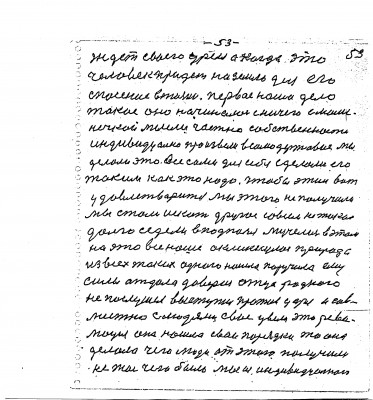 -53-
53
ждет своего время когда это
человек придет на землю для его
спасение в жизни. первое наша дело
такое оно начиналось с ничего с маши-
нечкой мысли частно собственность
индивидуально произвели самодутовое мы
делали это. Все сами для себя сделали его
таким как это надо. чтобы этим вот
удовлетворится мы этого не получили
мы стали искать другое совсем не такое
долго седели в подвал мучели в этом
на это все наше окликнулся природа
из всех таких одного нашла поручила ему
силы отдала доверил отца родного
не послушал выступил против царя и сов-
местно с людями свое увел это рево-
люция она нашла свои порядки то она
делала чего люди от этого получили
не то чего было мы и индивидуального